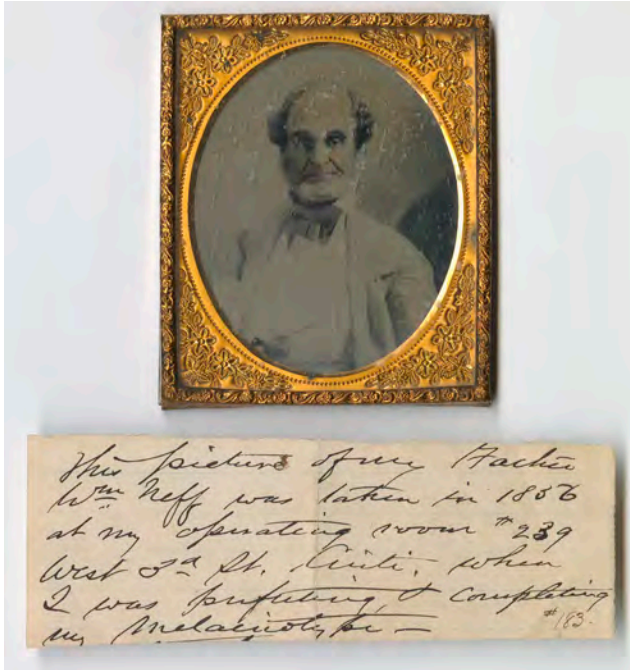 This picture of my Father
Wm Neff was taken in 1856
at my operating room # 239
West 3d St. Cinti, when
I was perfecting & completing
my Melainotype —
# 183.